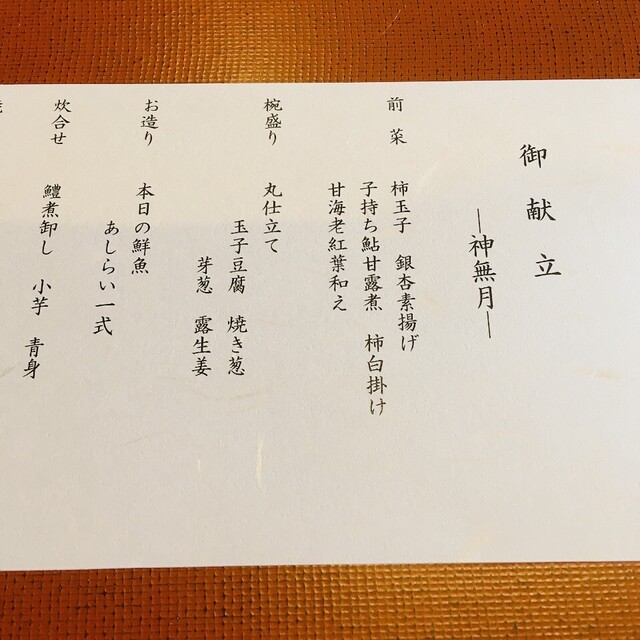 御献立
―神無月―
前菜
柿玉子 銀杏素揚げ
子持ち鮎甘露煮 柿白掛け
甘海老紅葉和え
椀盛り
丸仕立て
玉子豆腐 焼き葱
芽葱 露生姜
お造り
本日の鮮魚
あしらい一式
炊合せ
鱧煮卸し 小芋 青身